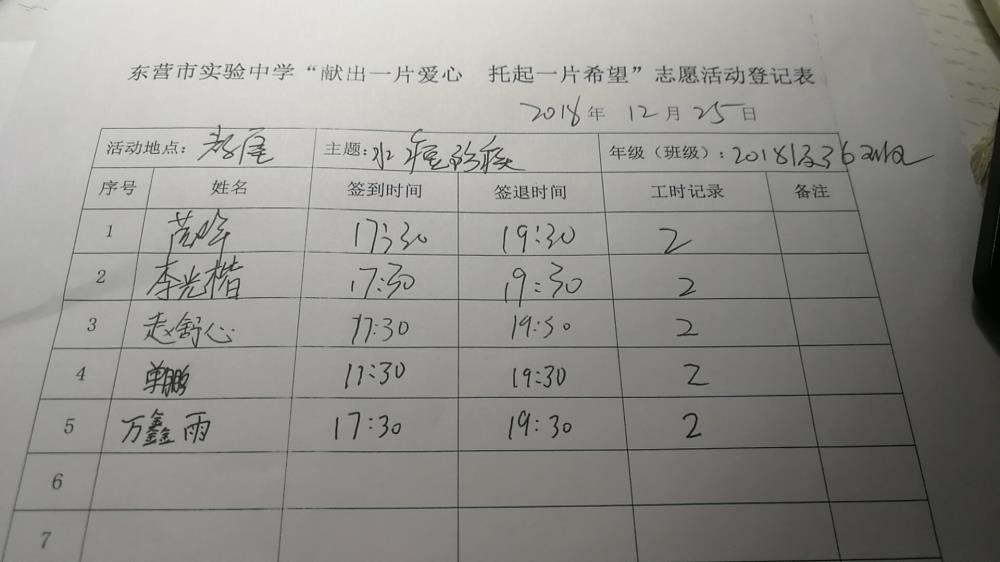 东营市实验中学“献出一片爱心 托起一片希望”志愿活动登记表
2018年 12月25日
活动地点: 教室 主题: 年级（班级）: 2018级36
序号 姓名 签到时间 签退时间 工时记录 备注
1 17:30 19:30 2
2 李光楷 17:30 19:30 2
3 赵舒心 17:30 19:30 2
4 单鹏 17:30 19:30 2
5 万鑫雨 17:30 19:30 2
6
7